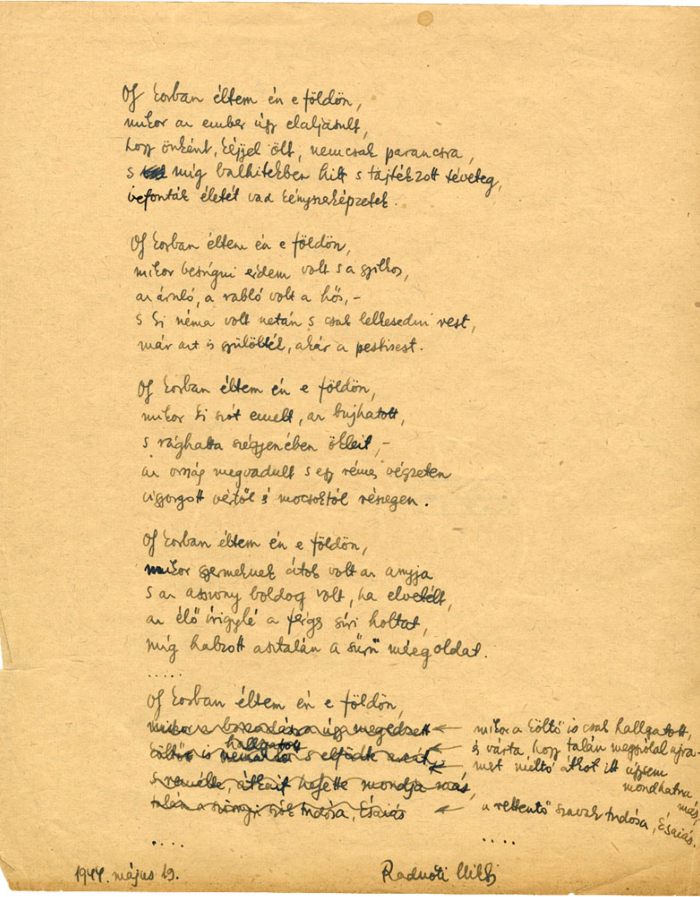 Oly korban éltem én e földön,
mikor az ember úgy elaljasult,
hogy önként, kéjjel ölt, nemcsak parancsra,
s míg balhitekben hitt s tajtékzott téveteg,
befonták életét vad kényszerképzetek.
Oly korban éltem én e földön,
mikor besúgni érdem volt s a gyilkos,
az áruló, a rabló volt a hős, –
s ki néma volt netán s csak lelkesedni rest,
már azt is gyülölték, akár a pestisest.
Oly korban éltem én e földön,
mikor ki szót emelt, az bujhatott,
s rághatta szégyenében ökleit, –
az ország megvadult s egy rémes végzeten
vigyorgott vértől és mocsoktól részegen.
Oly korban éltem én e földön,
mikor gyermeknek átok volt az anyja
s az asszony boldog volt, ha elvetélt,
az élő írigylé a férges síri holtat,
míg habzott asztalán a sűrű méregoldat.
.....
Oly korban éltem én e földön,
mikor a költő is csak hallgatott,
és várta, hogy talán megszólal ujra-
mert méltó átkot itt úgysem
mondhatna
más,
a rettentő szavak tudósa, Ésaiás.
hallgatott
költő is
s remélte, átkait helyette mondja más,
talán a szók tudósa, Ésaiás
....
....
1944. május 19.
Radnóti Mikl